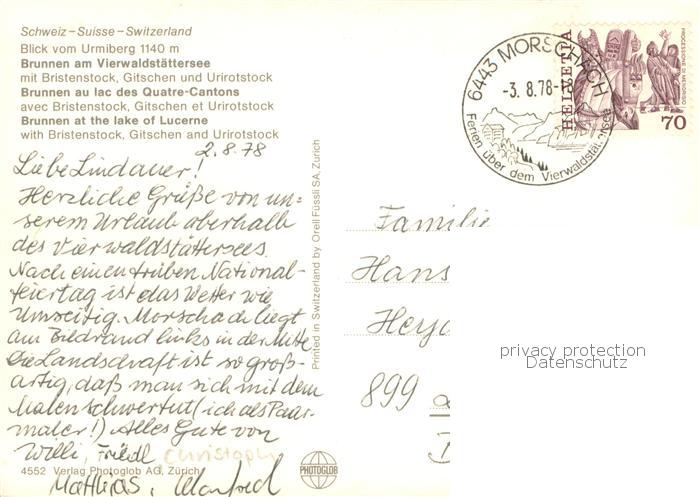 Schweiz – Suisse – Switzerland
Blick vom Urmiberg 1140 m
Brunnen am Vierwaldstättersee
mit Bristenstock, Gitschen und Urirotstock
Brunnen au lac des Quatre-Cantons
avec Bristenstock, Gitschen et Urirotstock
Brunnen at the lake of Lucerne
with Bristenstock, Gitschen and Urirotstock
2.8.78
Liebe Lindauer!
Herzliche Grüße von un=
serem Urlaub oberhalb
des Vierwaldstättersees.
Nach einem trüben National-
feiertag ist das Wetter wie
umseitig. Morschach liegt
am Bildrand links in der Mitte
Die Landschaft ist so groß-
artig, daß man sich mit dem
Malen schwertut (ich als
maler!) Alles Gute von
Willi, Friedl Christoph
Matthias, Manfred
4552 Verlag Photoglob AG, Zürich
PHOTOGLOB
Printed in Switzerland by Orell Füssli SA, Zürich
6443 MORSCHACH
-3. 8.78-
Ferien über dem Vierwaldstättersee
HELVETIA
70
Familie
Hans
899
privacy protection
Datenschutz